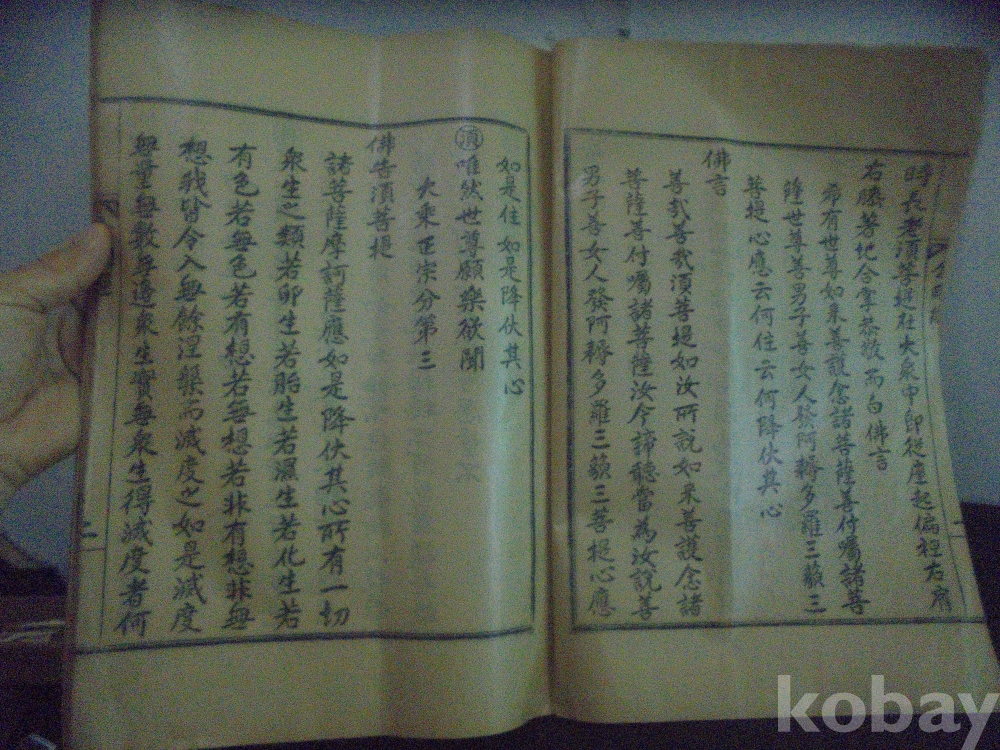 時長老須菩提在大衆中即從座起偏袒右肩
右膝著地合掌恭敬而白佛言
希有世尊如来善護念諸菩薩善付囑諸菩
薩世尊善男子善女人發阿耨多羅三藐三
菩提心應云何住云何降伏其心
佛言
善哉善哉須菩提如汝所說如来善護念諸
菩薩善付囑諸菩薩汝今諦聽當為汝說善
男子善女人發阿耨多羅三藐三菩提心應
如是住如是降伏其心
須唯然世尊願樂欲聞
大乘正宗分第三
佛告須菩提
諸菩薩摩訶薩應如是降伏其心所有一切
衆生之類若卵生若胎生若濕生若化生若
有色若無色若有想若無想若非有想非無
想我皆令入無餘涅槃而滅度之如是滅度
無量無數無邊衆生實無衆生得滅度者何
二
kobay